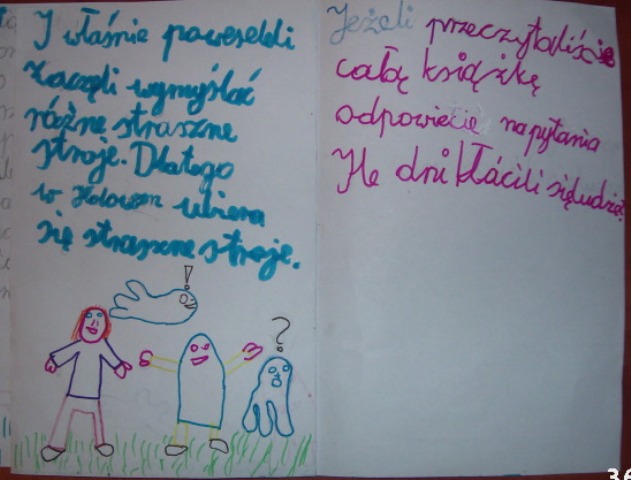 I właśnie poweselli
Zaczęli wygmyślać
różne straszne
stroje. Dlatego
w Holowen ubiera
się straszne stroje.
!
?
Jeżeli przeczytaliście
całą książkę
odpowiecie na pytania
Ile dni kłócili się ludzie?
36